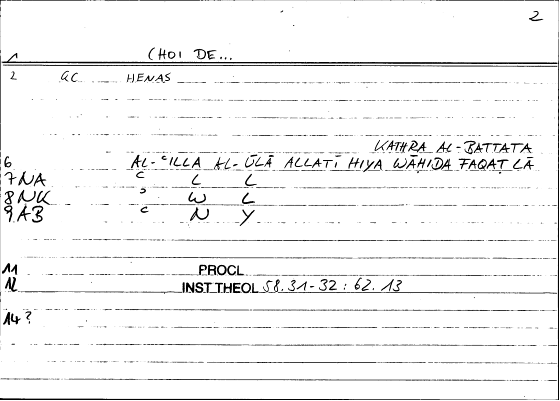 2
1 CHOI DE...
2 GC HENAS
KATHRA AL-BATTATA
6 AL-ʿILLA AL-ŪLĀ ALLATĪ HIYA WĀḤIDA FAQAṬ LĀ
7 NA ʿ L L
8 NK ʾ W L
9 AB ʿ N Y
11 PROCL
12 INST THEOL 58.31-32 : 62.13
14 ?